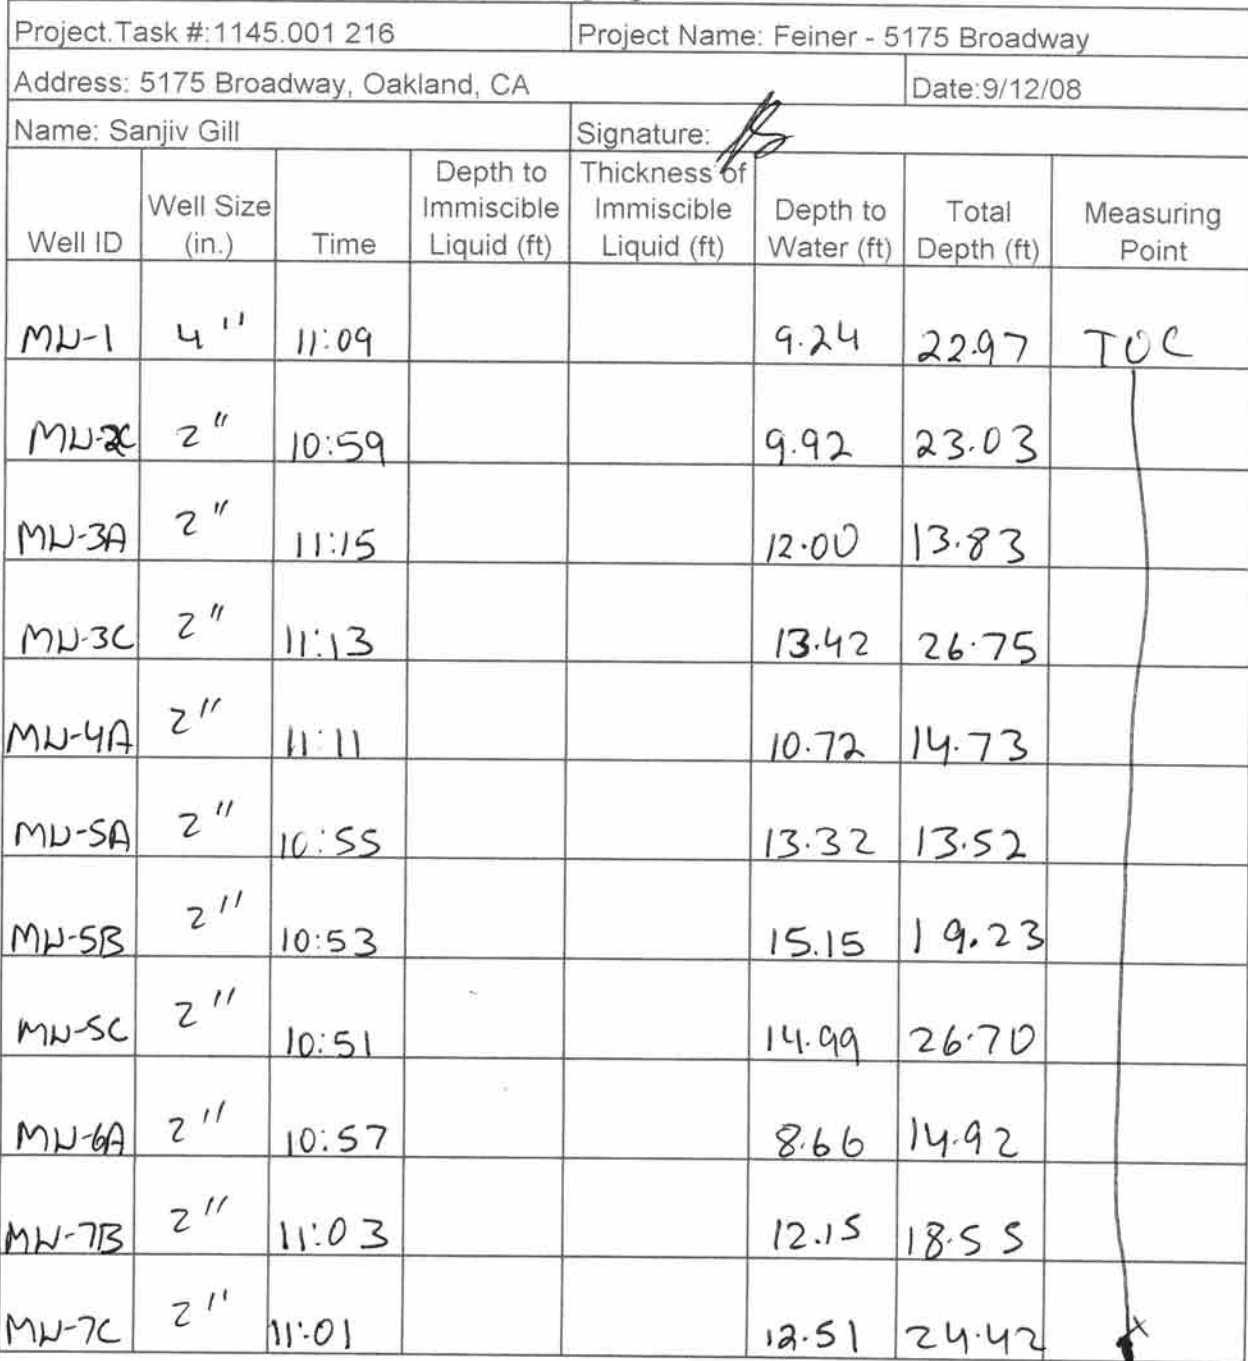 Project.Task #:1145.001 216 Project Name: Feiner - 5175 Broadway
Address: 5175 Broadway, Oakland, CA Date:9/12/08
Name: Sanjiv Gill Signature:
Well ID Well Size (in.) Time Depth to Immiscible Liquid (ft) Thickness of Immiscible Liquid (ft) Depth to Water (ft) Total Depth (ft) Measuring Point
MW-1 4" 11:09 9.24 22.97 TOC
MW-2C 2" 10:59 9.92 23.03
MW-3A 2" 11:15 12.00 13.83
MW-3C 2" 11:13 13.42 26.75
MW-4A 2" 11:11 10.72 14.73
MW-5A 2" 10:55 13.32 13.52
MW-5B 2" 10:53 15.15 19.23
MW-5C 2" 10:51 14.99 26.70
MW-6A 2" 10:57 8.66 14.92
MW-7B 2" 11:03 12.15 18.55
MW-7C 2" 11:01 12.51 24.42